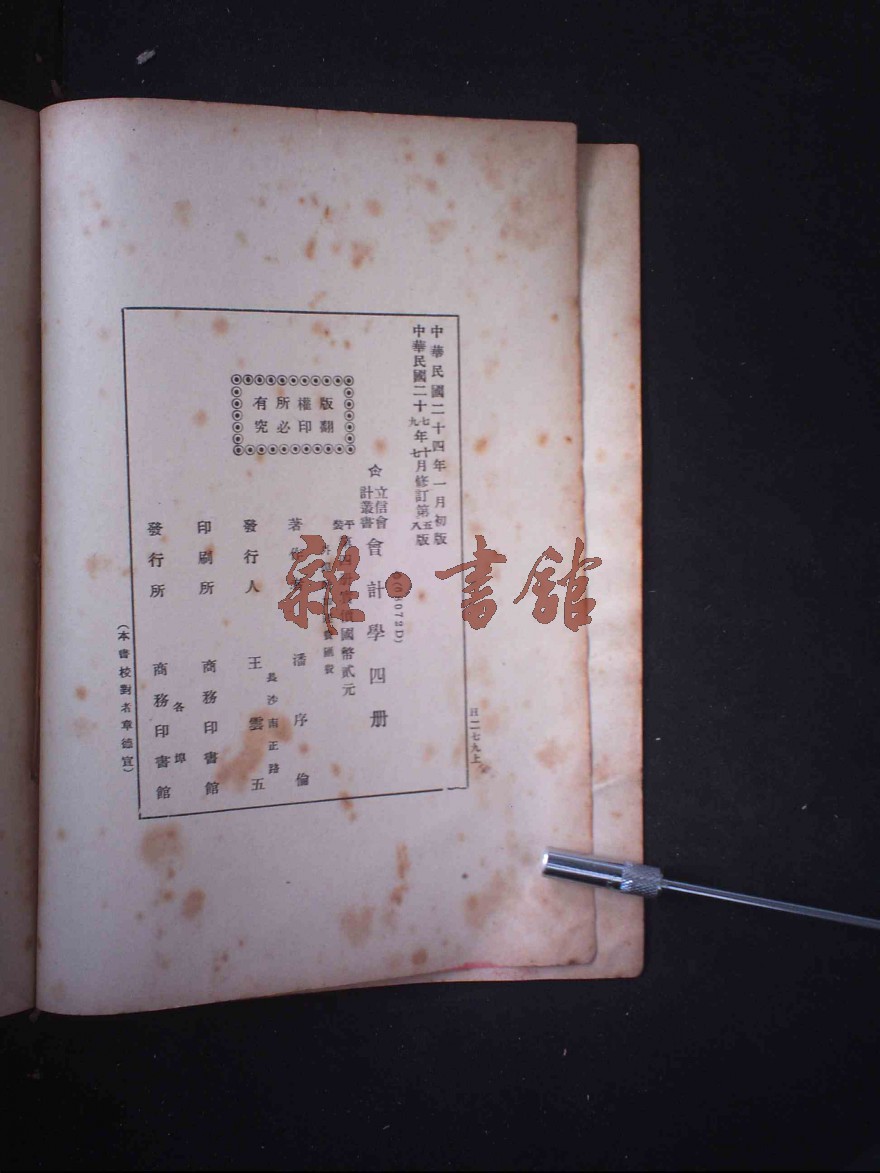 中華民國二十四年一月初版
中華民國二十七年十月修訂第五版
九七八
版權所有
翻印必究
☆
立信會計叢書
會計學四册
(072D)
平裝
國幣貳元
匯費
著
潘序倫
發行人
王雲五
長沙南正路
印刷所
商務印書館
發行所
商務印書館
各埠
(本書校對者章德宣)
H二七九上
雜·書館